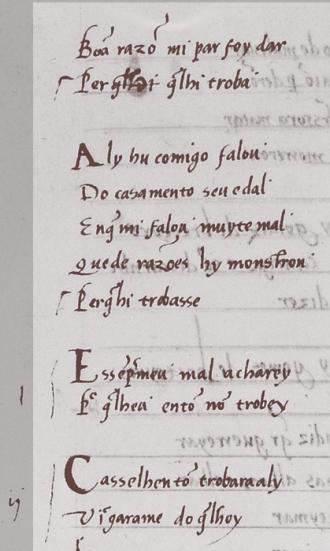 Boã razõ mi par foy dar
Per q̃lhi trobei
Aly hu comigo falou
Do casamento seu e dal
Enq̃ mi falou muyte mal
Quede razoẽs hy monstrou
Perq̃lhi trobasse
Essep̃meu mal acharey
Pº q̃lheu entõ nõ trobey
Casselhentõ trobaraaly
Vĩgarame do q̃lhoy